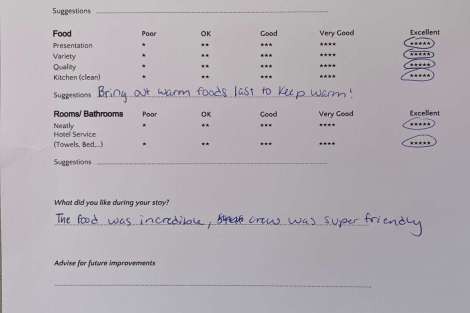 Suggestions
Food Poor OK Good Very Good Excellent
Presentation * ** *** **** *****
Variety * ** *** **** *****
Quality * ** *** **** *****
Kitchen (clean) * ** *** **** *****
Suggestions Bring out warm foods last to keep warm!
Rooms/ Bathrooms Poor OK Good Very Good Excellent
Neatly * ** *** **** *****
Hotel Service
(Towels, Bed...) * ** *** **** *****
Suggestions
What did you like during your stay?
The food was incredible, crew was super friendly
Advise for future improvements